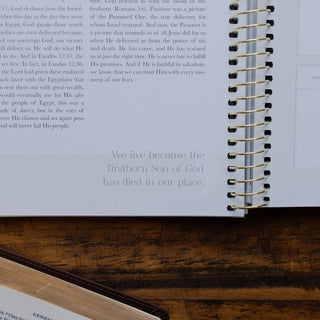 17, God declares how the Israel-
mber this day as the days were
n Egypt. God spoke those words
aelites are even delivered because,
our sovereign God, our victory
will deliver us. He will do what He
l to do. And in Exodus 12:31, the
e set free. In fact, in Exodus 12:36,
the Lord had given these enslaved
ch favor with the Egyptians that
s sent them out with great wealth,
would eventually use for His tab-
the people of Egypt, this was a
ude of slaves, but in the eyes of
were His chosen and set apart peo-
God will never fail His people.
time, God rescued us with the blood of the
firstborn Romans 5:6. Passover was a picture
of the Promised One, the true deliverer, for
whom Israel yearned. And now, the Passover is
a picture that reminds us of all Jesus did for us
when He delivered us from the power of sin
and death. He has come, and He has rescued
us at just the right time. He is never late to fulfill
His promises. And if He is faithful in salvation,
we know that we can trust Him with every mo-
ment of our lives.
We live because the
firstborn Son of God
has died in our place.